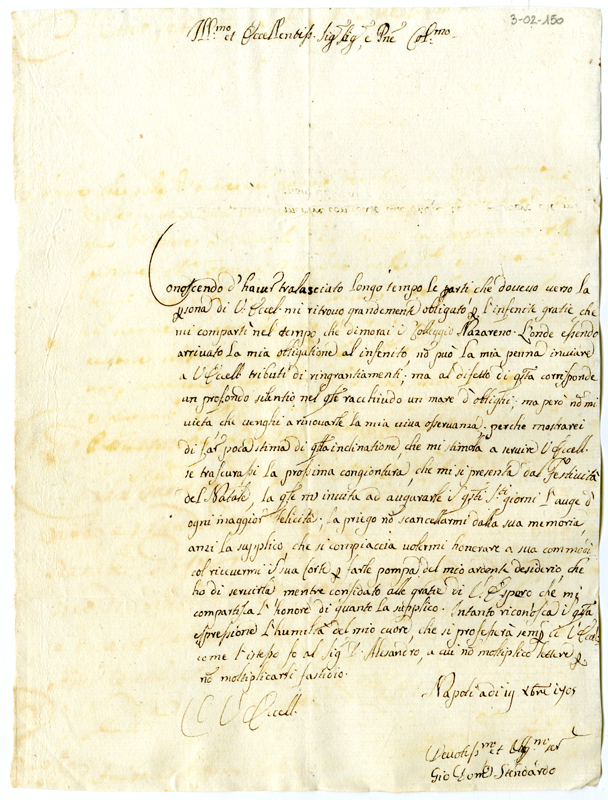 3-02-150
Ill.mo et Eccellentiss. Sig. Sig.e e Pne Col.mo
Conoscendo d'haver tralasciato longo tempo le parti che dovevo verso la
psona di V. Eccel. mi ritrovo grandemente obligato p l'infenite gratie che
mi compartì nel tempo che dimorai i Colleggio Nazareno. Londe essendo
arrivato la mia obligatione al infenito nō può la mia penna inviare
a V. Eccell. tributi di ringratiamenti; ma al difetto di qsta corrisponde
un profondo silentio nel qle racchiudo un mare d'oblighi; ma però nō mi
vieta che venghi a rinovarle la mia viva osservanza. perche mostrarei
di far poca stima di qlla inclinatione, che mi stimola a servire V. Eccell.
se trascurassi la prossima congiontura, che mi si presenta dal Festività
del Natale, la qle mi invita ad augurarle i qsti S.ti giorni l'auge d
ogni maggior felicità. la priego nō scancellarmi dalla sua memoria,
anzi la supplico, che si compiaccia volermi honorare a sua commodi
col ricevermi i sua Corte p farle pompa del mio ardente desiderio che
ho di servirla mentre confidato alle gratie di V. E. spero che mi
compartisca l'honore di quanto la supplico. Intanto riconosca i qsta
espressione l'humiltà del mio cuore, che si professerà semp di V. Eccel.
come l'istesso fo al Sig. D. Alesandro, a cui nō moltiplico lettere p
nō moltiplicarsi fastidio.
Napoli adi 19 Xbre 1701
D V. Eccell.
Devotiss.mo et Oblig.mo ser
Gio Dom.o Stendardo